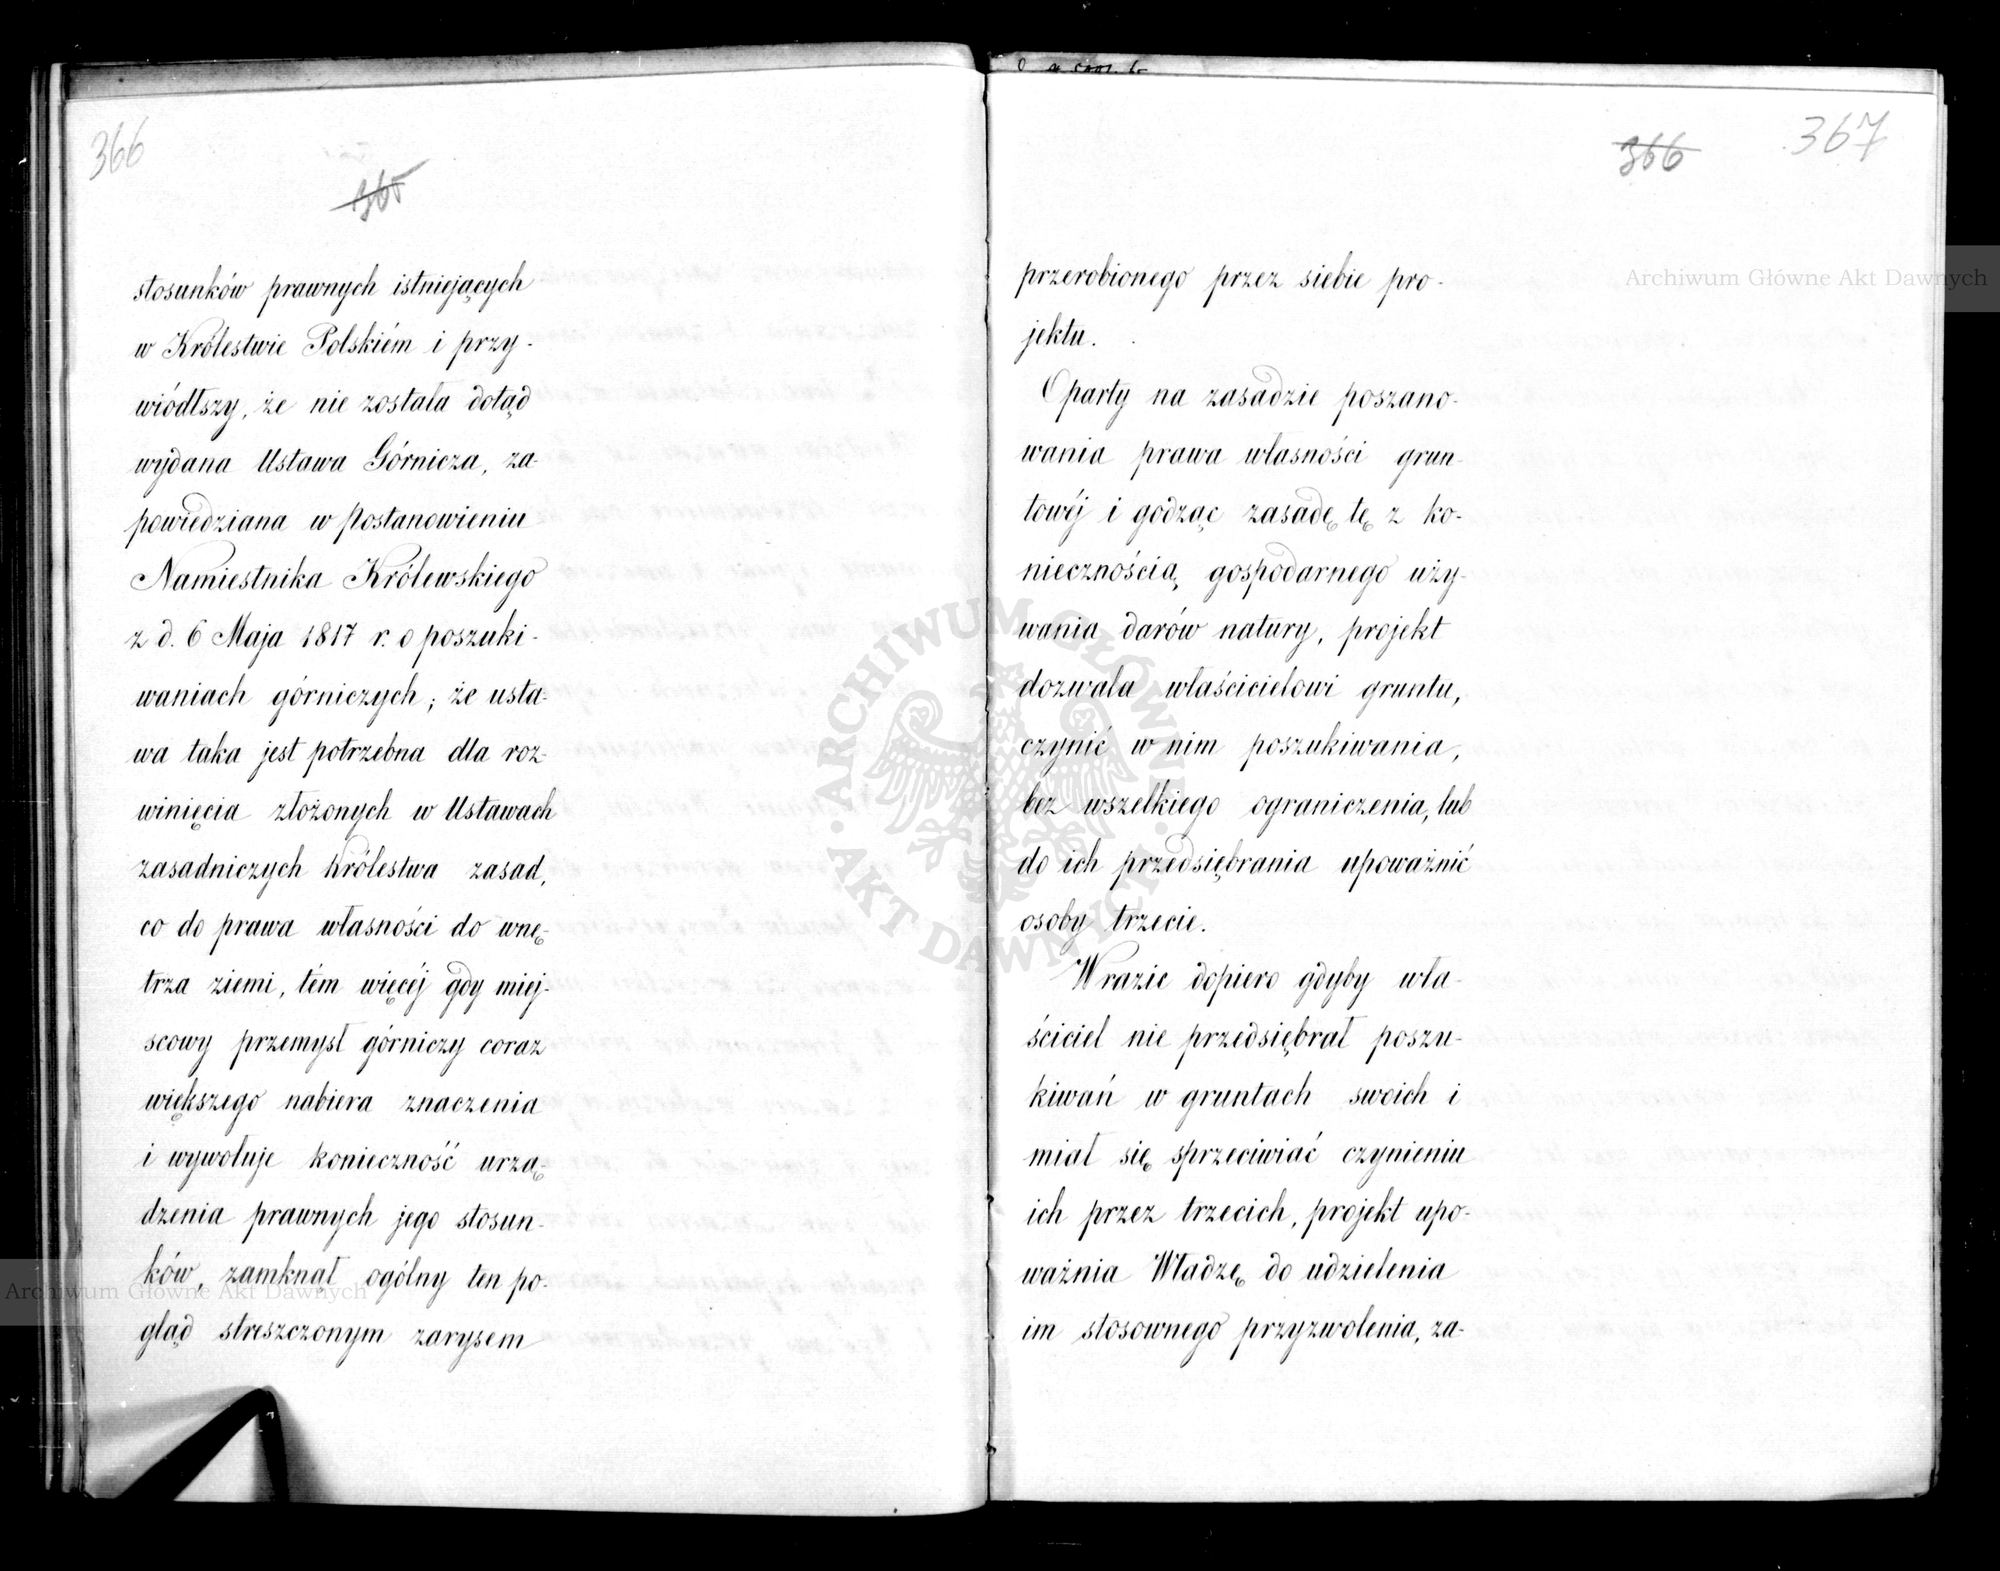 366
365
stosunków prawnych istniejących
w Królestwie Polskiém i przy-
wiódłszy, że nie została dotąd
wydana Ustawa Górnicza, za-
powiedziana w Postanowieniu
Namiestnika Królewskiego
z d. 6 Maja 1817 r. o poszuki-
waniach górniczych; że usta-
wa taka jest potrzebna dla roz-
winięcia złożonych w Ustawach
zasadniczych Królestwa zasad,
co do prawa własności do wnę-
trza ziemi, tém więcéj gdy miej-
scowy przemysł górniczy coraz
większego nabiera znaczenia
i wywołuje konieczność urzą-
dzenia prawnych jego stosun-
ków, zamknął ogólny ten po-
gląd streszczonym zarysem
366
367
przerobionego przez siebie pro-
jektu.
Oparty na zasadzie poszano-
wania prawa własności grun-
towéj i godząc zasadę tę z ko-
niecznością gospodarnego uży-
wania darów natury, projekt
dozwala właścicielowi gruntu,
czynić w nim poszukiwania,
bez wszelkiego ograniczenia, lub
do ich przedsiębrania upoważnić
osoby trzecie.
W razie dopiero gdyby wła-
ściciel nie przedsiębrał poszu-
kiwań w gruntach swoich i
miał się sprzeciwiać czynieniu
ich przez trzecich, projekt upo-
ważnia Władzę do udzielenia
im stosownego przyzwolenia, za-
Archiwum Główne Akt Dawnych
Archiwum Główne Akt Dawnych
ARCHIWUM GŁÓWNE AKT DAWNYCH